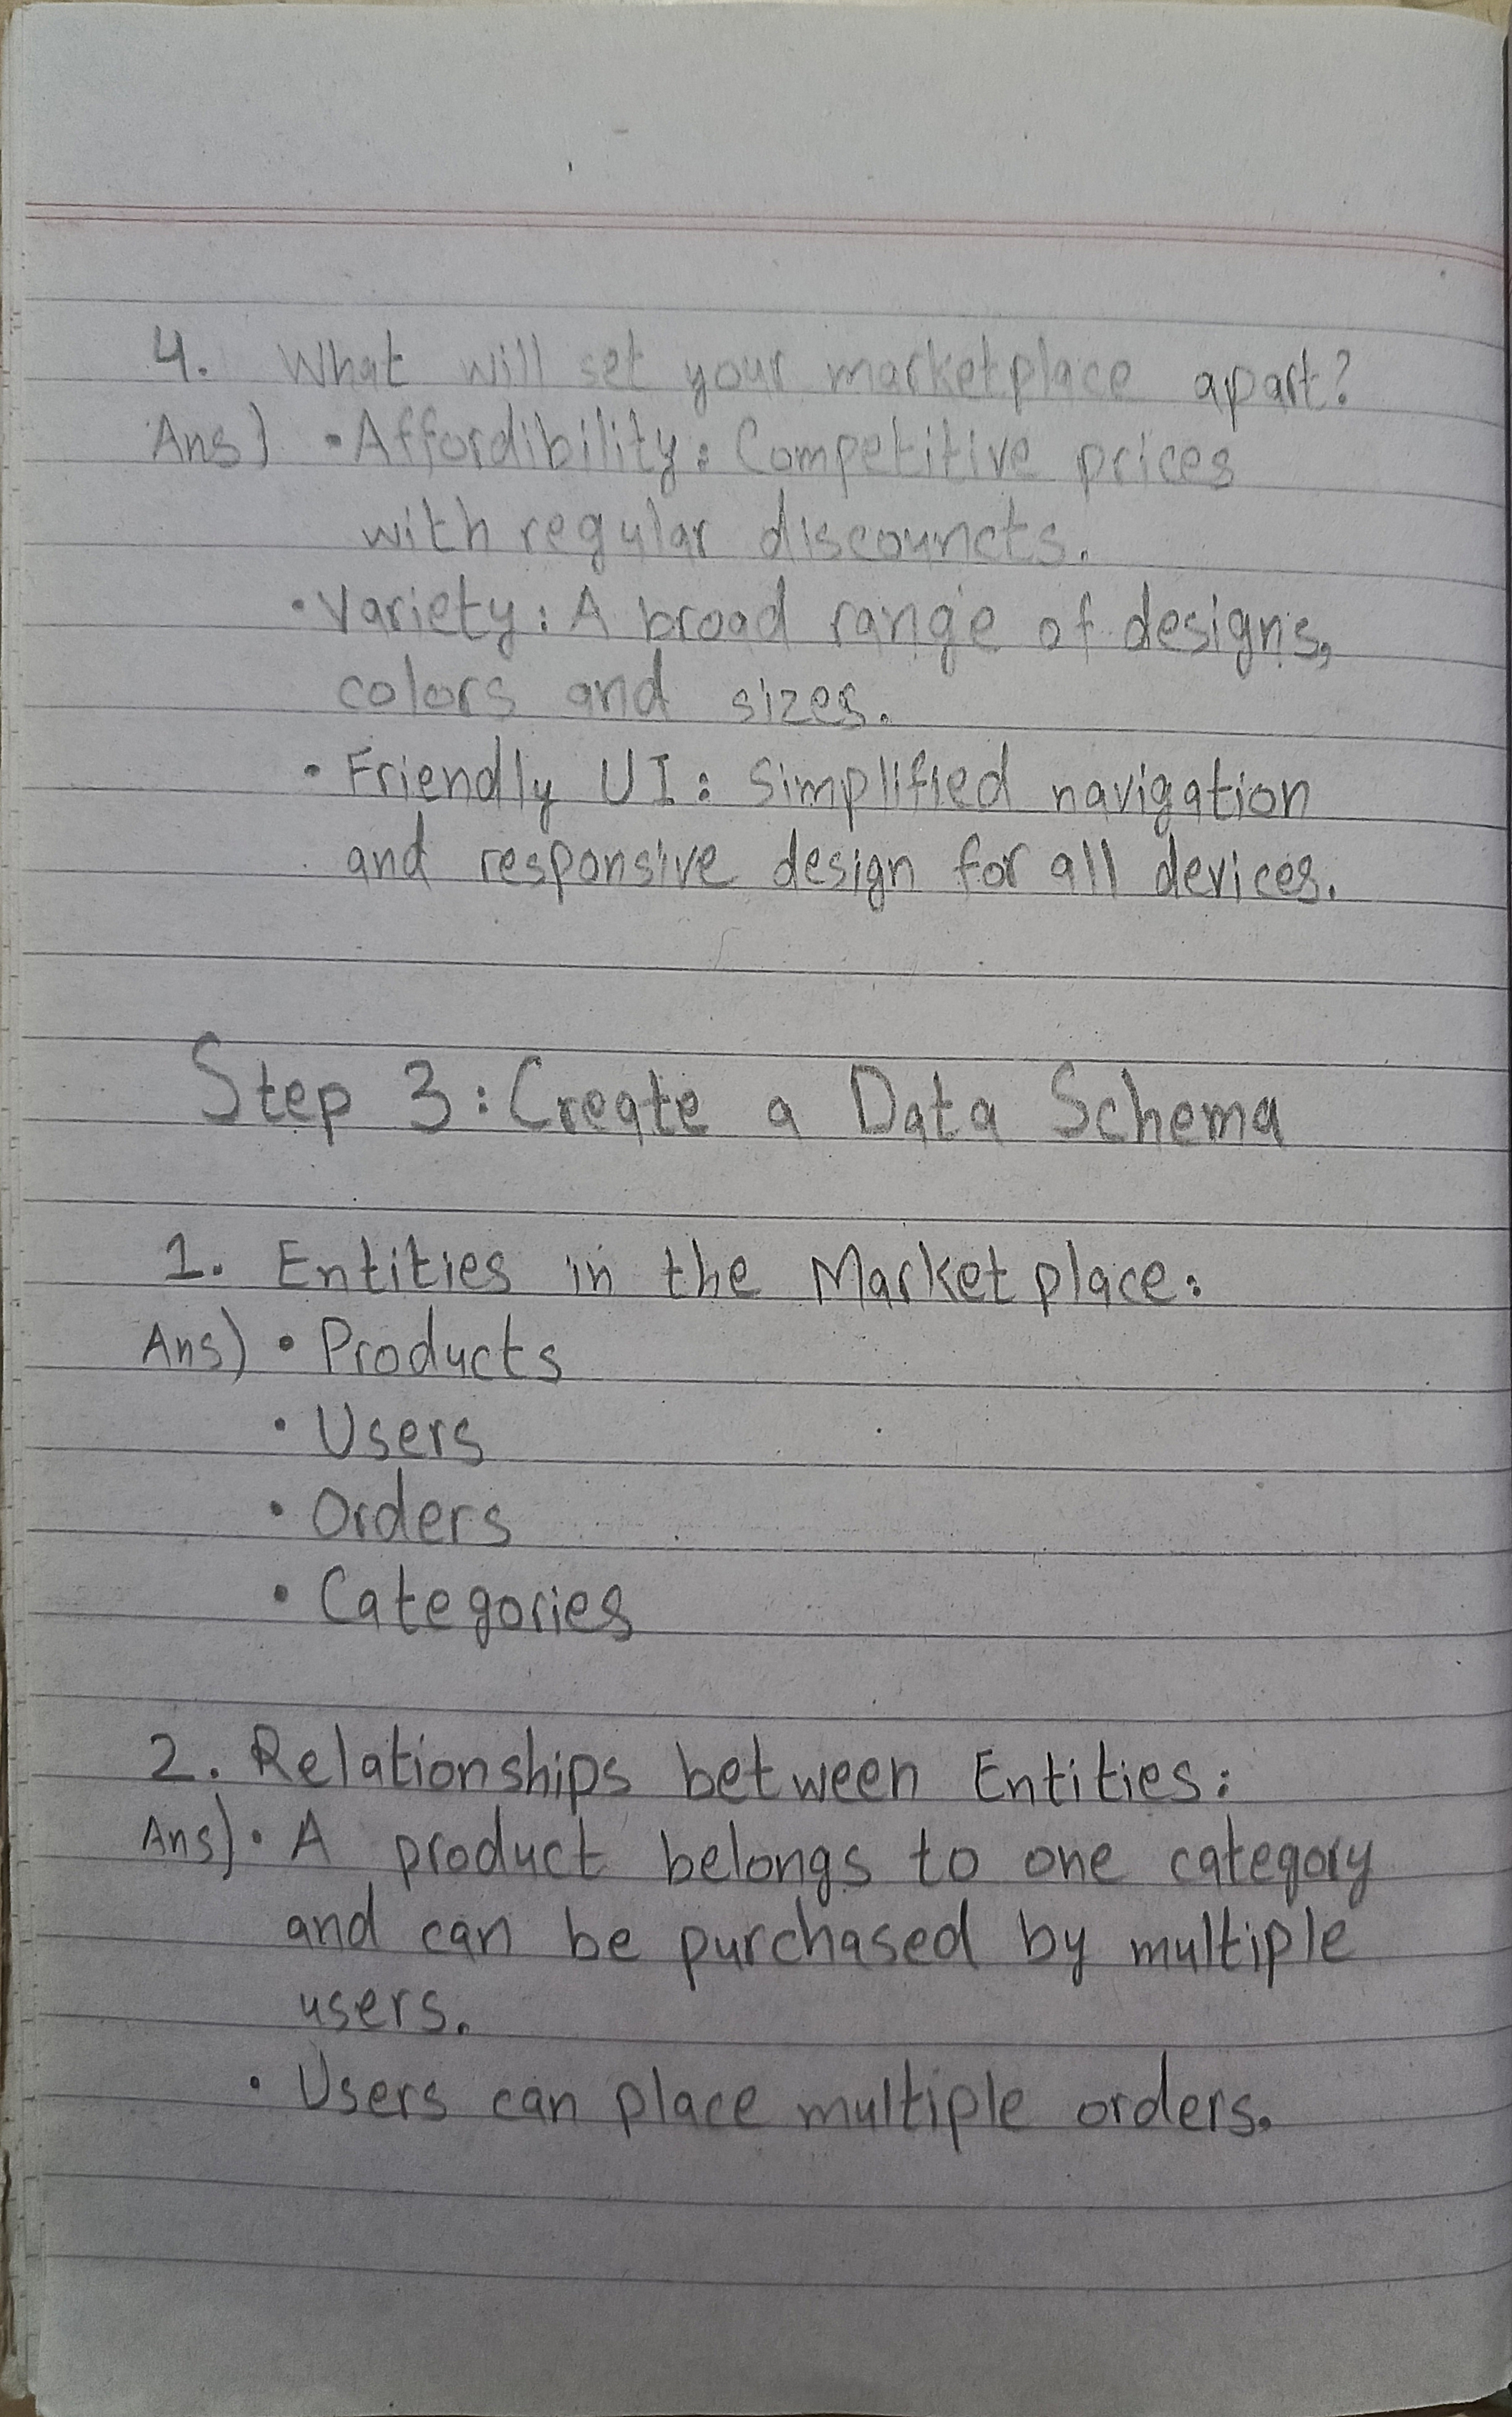 4. What will set your marketplace apart?
Ans) • Affordibility: Competitive prices
with regular discouncts.
• Variety: A broad range of designs,
colors and sizes.
• Friendly UI: Simplified navigation
and responsive design for all devices.
Step 3: Create a Data Schema
1. Entities in the Marketplace:
Ans) • Products
• Users
• Orders
• Categories
2. Relationships between Entities:
Ans) • A product belongs to one category
and can be purchased by multiple
users.
• Users can place multiple orders.